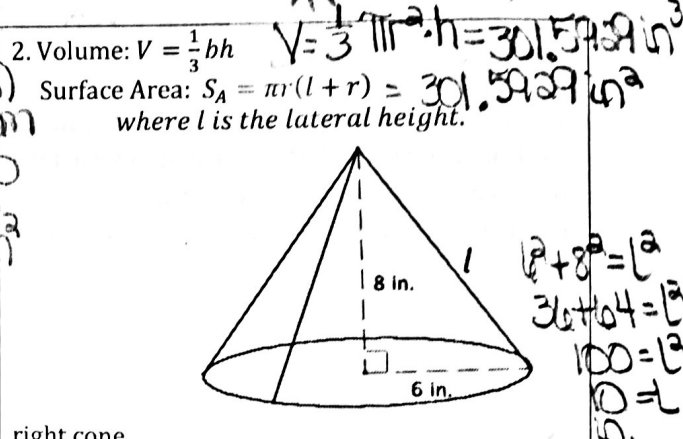 2. Volume: V = 1/3 bh V = 1/3 πr²·h = 301.5929 in³
Surface Area: S_A = πr(l + r) = 301.5929 in²
where l is the lateral height.
l
8 in.
6 in.
6² + 8² = l²
36 + 64 = l²
100 = l²
10 = l
in.
right cone